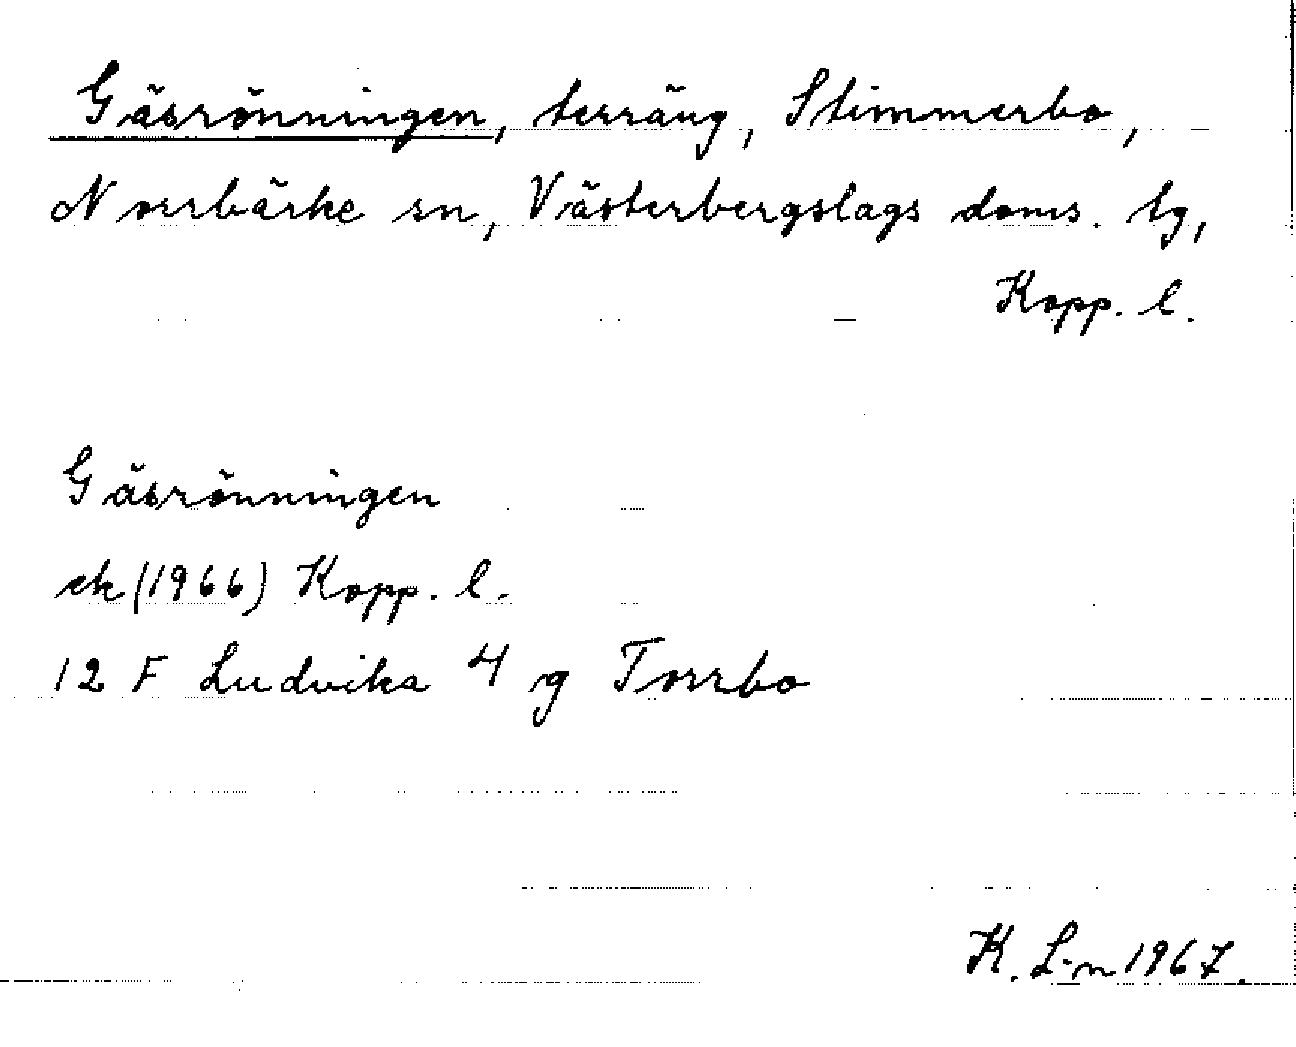 Gäsrönningen, terräng, Stimmerbo,
Norrbärke sn, Västerbergslags doms. lg,
Kopp. l.
Gäsrönningen
ek (1966) Kopp. l.
12 F Ludvika 4 g Torrbo
K. L-n 1967.